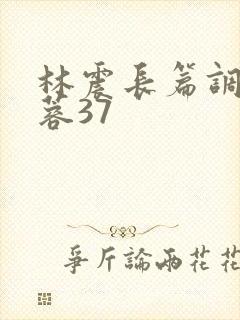 林震長篇調
蓉37
爭斤論兩花花